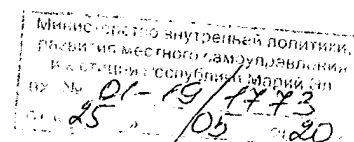 Министерство внутренней политики,
развития местного самоуправления
и юстиции Республики Марий Эл
вх. № 01-19/1773
25 05 20